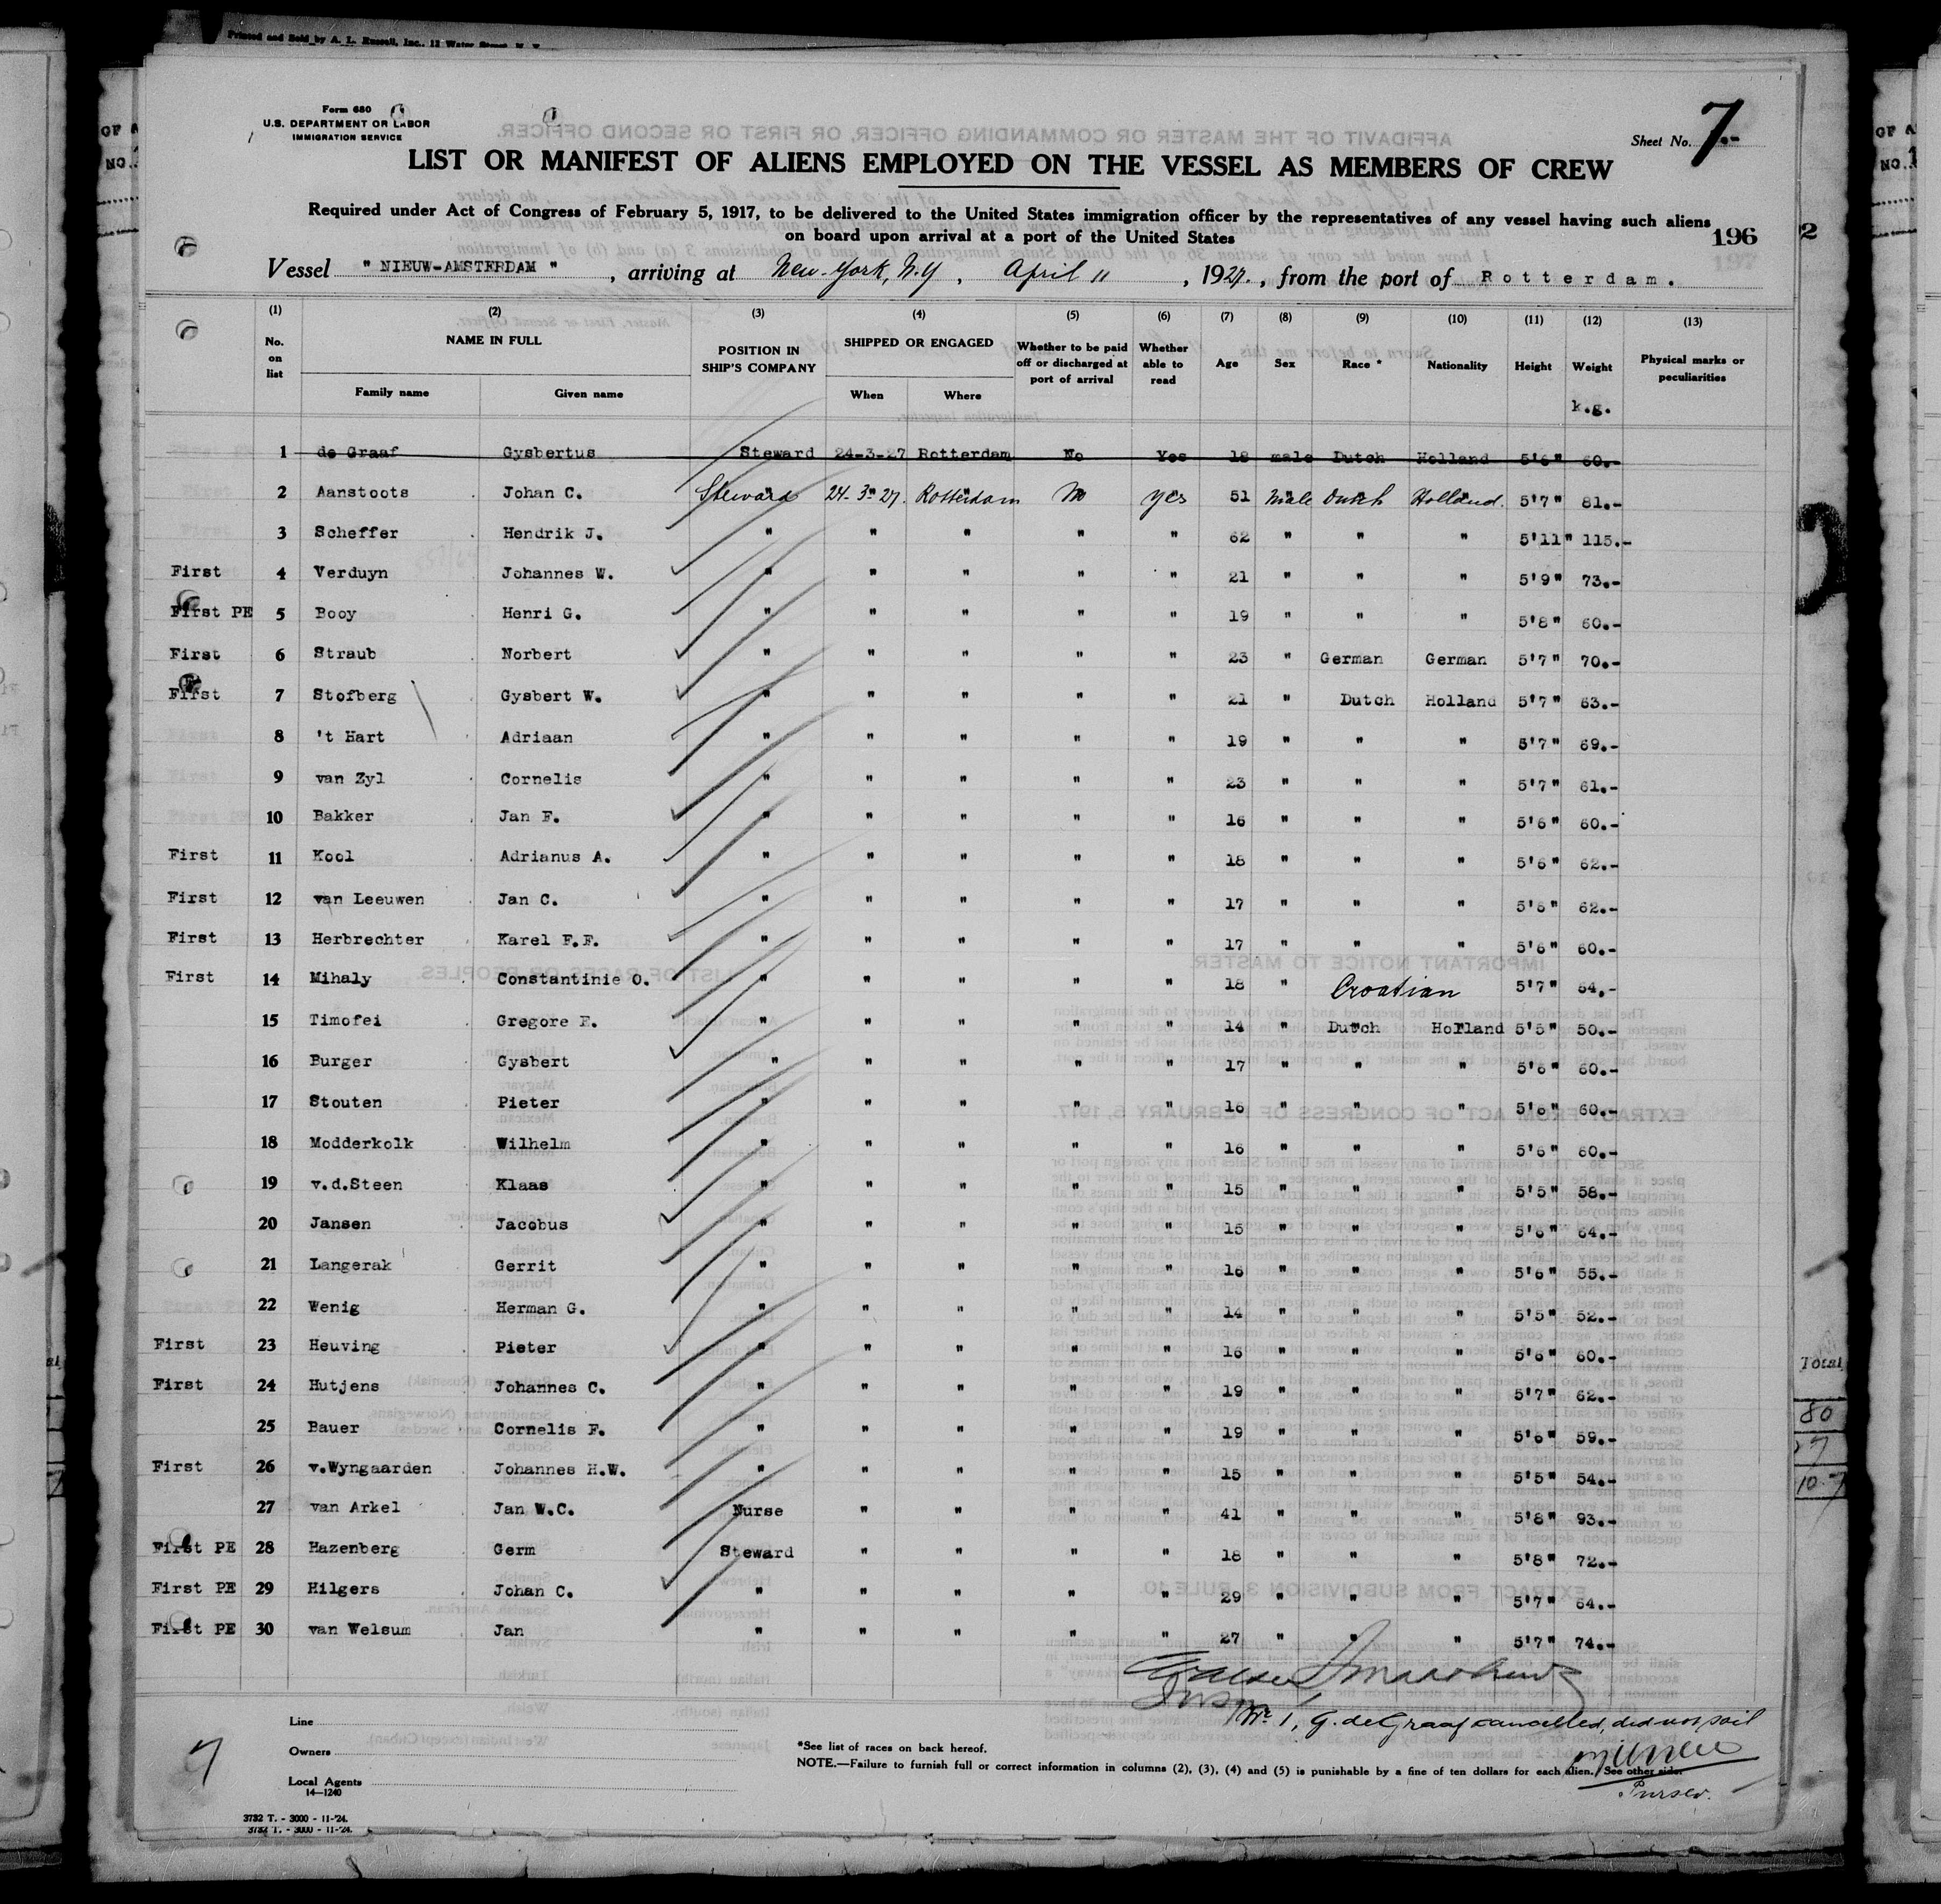 Printed and Sold by A. L. Russell, Inc., 12 Water Street, N. Y.
Form 680
U.S. DEPARTMENT OF LABOR
IMMIGRATION SERVICE
Sheet No. 7.-
LIST OR MANIFEST OF ALIENS EMPLOYED ON THE VESSEL AS MEMBERS OF CREW
Required under Act of Congress of February 5, 1917, to be delivered to the United States immigration officer by the representatives of any vessel having such aliens
on board upon arrival at a port of the United States
196
Vessel " NIEUW-AMSTERDAM " , arriving at New-York, N.Y , April 11 , 1927. , from the port of Rotterdam.
(1) (2) (3) (4) (5) (6) (7) (8) (9) (10) (11) (12) (13)
No. on list NAME IN FULL Family name Given name POSITION IN SHIP'S COMPANY SHIPPED OR ENGAGED When Where Whether to be paid off or discharged at port of arrival Whether able to read Age Sex Race * Nationality Height Weight Physical marks or peculiarities
k.g.
1 de Graaf Gysbertus Steward 24-3-27 Rotterdam No Yes 18 male Dutch Holland 5'6" 60.-
2 Aanstoots Johan C. Steward 24-3-27. Rotterdam No yes 51 Male Dutch Holland. 5'7" 81.-
3 Scheffer Hendrik J. " " " " " 62 " " " 5'11" 115.-
First 4 Verduyn Johannes W. " " " " " 21 " " " 5'9" 73.-
First PE 5 Booy Henri G. " " " " " 19 " " " 5'8" 60.-
First 6 Straub Norbert " " " " " 23 " German German 5'7" 70.-
First 7 Stofberg Gysbert W. " " " " " 21 " Dutch Holland 5'7" 63.-
8 't Hart Adriaan " " " " " 19 " " " 5'7" 69.-
9 van Zyl Cornelis " " " " " 23 " " " 5'7" 61.-
10 Bakker Jan F. " " " " " 16 " " " 5'6" 60.-
First 11 Kool Adrianus A. " " " " " 18 " " " 5'6" 62.-
First 12 van Leeuwen Jan C. " " " " " 17 " " " 5'6" 62.-
First 13 Herbrechter Karel F.F. " " " " " 17 " " " 5'6" 60.-
First 14 Mihaly Constantinie O. " " " " " 18 " Croatian 5'7" 64.-
15 Timofei Gregore E. " " " " " 14 " Dutch Holland 5'5" 50.-
16 Burger Gysbert " " " " " 17 " " " 5'6" 60.-
17 Stouten Pieter " " " " " 16 " " " 5'6" 60.-
18 Modderkolk Wilhelm " " " " " 16 " " " 5'6" 60.-
19 v.d.Steen Klaas " " " " " 15 " " " 5'5" 58.-
20 Jansen Jacobus " " " " " 15 " " " 5'6" 64.-
21 Langerak Gerrit " " " " " 16 " " " 5'6" 55.-
22 Wenig Herman G. " " " " " 14 " " " 5'5" 52.-
First 23 Heuving Pieter " " " " " 16 " " " 5'6" 60.-
First 24 Hutjens Johannes C. " " " " " 19 " " " 5'7" 62.-
25 Bauer Cornelis F. " " " " " 19 " " " 5'6" 59.-
First 26 v.Wyngaarden Johannes H.W. " " " " " 15 " " " 5'5" 54.-
27 van Arkel Jan W.C. Nurse " " " " 41 " " " 5'8" 93.-
First PE 28 Hazenberg Germ Steward " " " " 18 " " " 5'8" 72.-
First PE 29 Hilgers Johan C. " " " " " 29 " " " 5'7" 64.-
First PE 30 van Welsum Jan " " " " " 27 " " " 5'7" 74.-
Nr. 1, G. de Graaf cancelled, did not sail
Purser.
Line
Owners
Local Agents
14—1240
7
*See list of races on back hereof.
NOTE.—Failure to furnish full or correct information in columns (2), (3), (4) and (5) is punishable by a fine of ten dollars for each alien. See other side.
3732 T. - 3000 - 11-'24.
3732 T. - 3000 - 11-'24.
2
Total
80
27
107